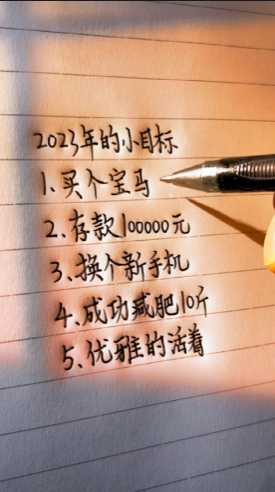 2023年的小目标
1.买个宝马
2.存款100000元
3.换个新手机
4.成功减肥10斤
5.优雅的活着